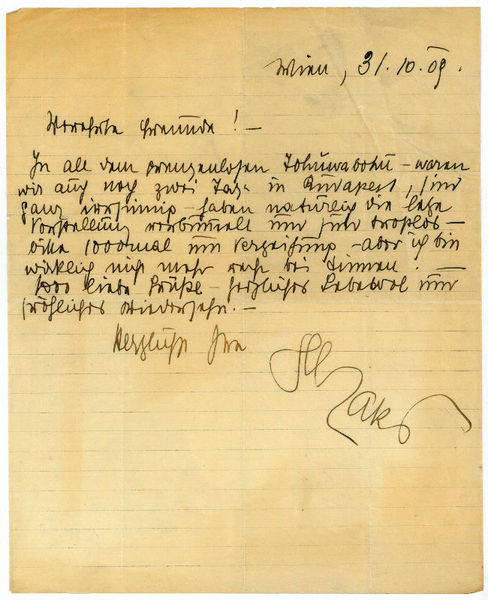 Wien, 31.10.09.
Verehrte Freunde! —
In all dem grenzenlosen Tohuwabohu – waren
wir auch noch zwei Tage in Budapest, sind
ganz irrsinnig – haben natürlich die
Vorstellung verbummelt und sind trostlos –
bitte 1000mal um Verzeihung – aber ich bin
wirklich nicht mehr recht bei Sinnen! —
1000 liebe Grüße – herzliches Lebewol und
fröhliches Wiedersehn. —
Herzlichst Ihre